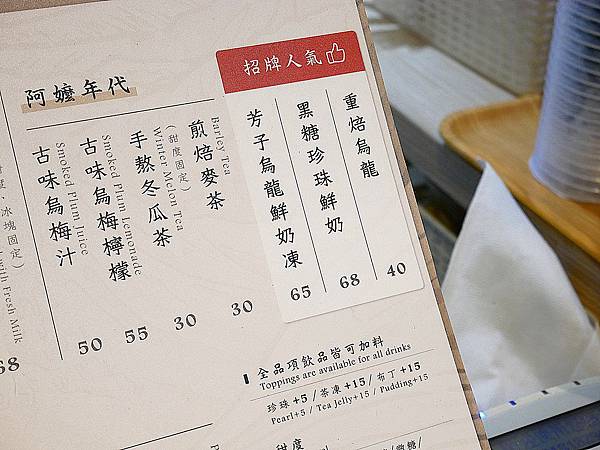 招牌人氣
重焙烏龍
40
黑糖珍珠鮮奶
68
芳子烏龍鮮奶凍
65
阿嬤年代
煎焙麥茶
Barley Tea
30
手熬冬瓜茶
(甜度固定)
Winter Melon Tea
30
古味烏梅檸檬
Smoked Plum Lemonade
55
古味烏梅汁
Smoked Plum Juice
50
冰塊固定)
with Fresh Milk
68
全品項飲品皆可加料
Toppings are available for all drinks
珍珠+5/茶凍+15/布丁+15
Pearl+5 / Tea Jelly+15 / Pudding+15
甜度
微糖/